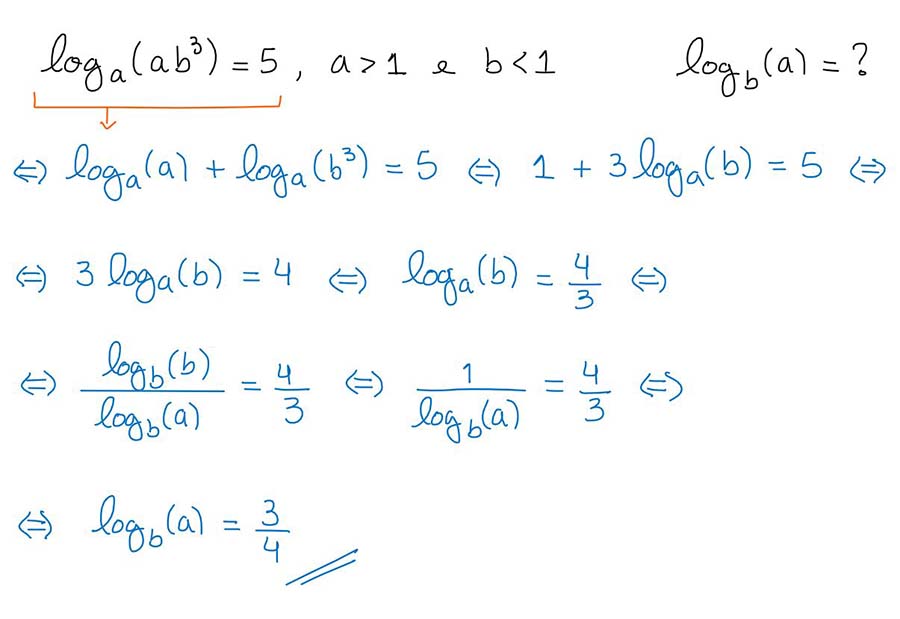 logₐ(ab³) = 5 , a > 1 e b < 1 log_b(a) = ?
⇔ logₐ(a) + logₐ(b³) = 5 ⇔ 1 + 3 logₐ(b) = 5 ⇔
⇔ 3 logₐ(b) = 4 ⇔ logₐ(b) = 4/3 ⇔
⇔ log_b(b)/log_b(a) = 4/3 ⇔ 1/log_b(a) = 4/3 ⇔
⇔ log_b(a) = 3/4